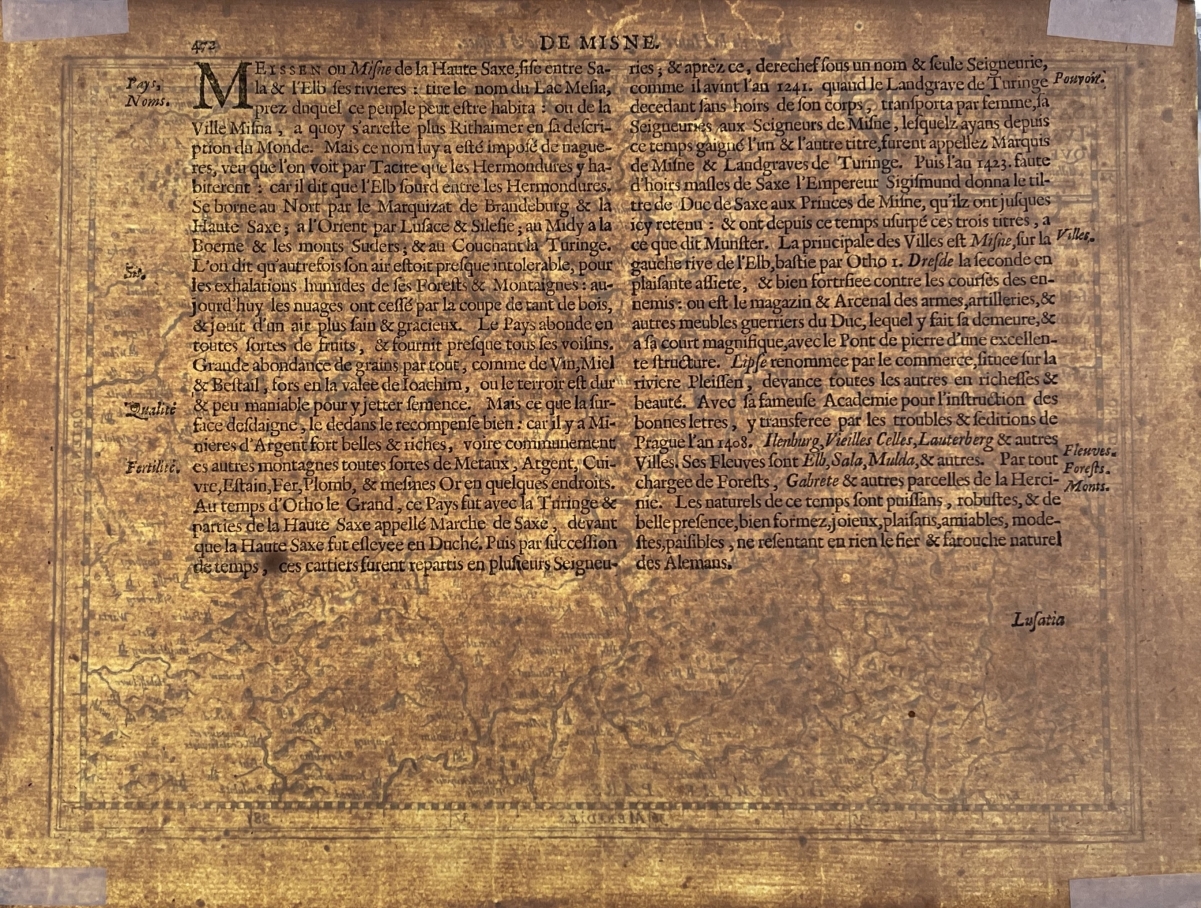 472
DE MISNE.
Pays,
Noms.
MEISSEN ou Misne de la Haute Saxe, sise entre Sa-
la & l'Elb ses rivieres : tire le nom du Lac Mesia,
prez duquel ce peuple peut estre habita : ou de la
Ville Misna, a quoy s'arreste plus Rithaimer en sa descri-
ption du Monde. Mais ce nom luy a esté imposé de nague-
res, veu que l'on voit par Tacite que les Hermondures y ha-
biterent : car il dit que l'Elb sourd entre les Hermondures.
Se borne au Nort par le Marquizat de Brandeburg & la
Haute Saxe ; a l'Orient par Lusace & Silesie ; au Midy a la
Boeme & les monts Suders ; & au Couchant la Turinge.
L'on dit qu'autrefois son air estoit presque intolerable, pour
les exhalations humides de ses Forests & Montaignes : au-
jourd'huy les nuages ont cessé par la coupe de tant de bois,
& jouit d'un air plus sain & gracieux. Le Pays abonde en
toutes sortes de fruits, & fournit presque tous ses voisins.
Grande abondance de grains par tout, comme de Vin, Miel
& Bestail, fors en la valée de Ioachim, ou le terroir est dur
Qualité
& peu maniable pour y jetter semence. Mais ce que la sur-
face desdaigne, le dedans le recompense bien : car il y a Mi-
nieres d'Argent fort belles & riches, voire communement
Fertilité.
es autres montagnes toutes sortes de Metaux, Argent, Cui-
vre, Estain, Fer, Plomb, & mesmes Or en quelques endroits.
Au temps d'Otho le Grand, ce Pays fut avec la Turinge &
parties de la Haute Saxe appellé Marche de Saxe, devant
que la Haute Saxe fut eslevee en Duché. Puis par succession
de temps, ces cartiers furent repartis en plusieurs Seigneu-
ries ; & aprez ce, derechef sous un nom & seule Seigneurie,
Pouvoir.
comme il avint l'an 1241. quand le Landgrave de Turinge
decedant sans hoirs de son corps, transporta par femme, sa
Seigneuries aux Seigneurs de Misne, lesquelz ayans depuis
ce temps gaigné l'un & l'autre titre, furent appellez Marquis
de Misne & Landgraves de Turinge. Puis l'an 1423. faute
d'hoirs masles de Saxe l'Empereur Sigismund donna le til-
tre de Duc de Saxe aux Princes de Misne, qu'ilz ont jusques
icy retenu : & ont depuis ce temps usurpé ces trois titres, a
ce que dit Munster. La principale des Villes est Misne, sur la
Villes.
gauche rive de l'Elb, bastie par Otho 1. Dresde la seconde en
plaisante assiete, & bien fortrfiee contre les courses des en-
nemis : ou est le magazin & Arcenal des armes, artilleries, &
autres meubles guerriers du Duc, lequel y fait sa demeure, &
a sa court magnifique, avec le Pont de pierre d'une excellen-
te structure. Lipse renommee par le commerce, situee sur la
riviere Pleissen, devance toutes les autres en richesses &
beauté. Avec sa fameuse Academie pour l'instruction des
bonnes letres, y transferee par les troubles & seditions de
Prague l'an 1408. Ilenburg, Vieilles Celles, Lauterberg & autres
Villes. Ses Fleuves sont Elb, Sala, Mulda, & autres. Par tout
Fleuves.
Forests.
Monts.
chargee de Forests, Gabrete & autres parcelles de la Herci-
nie. Les naturels de ce temps sont puissans, robustes, & de
belle presence, bien formez, joieux, plaisans, amiables, mode-
stes, paisibles, ne resentant en rien le fier & farouche naturel
des Alemans.
Lusatia